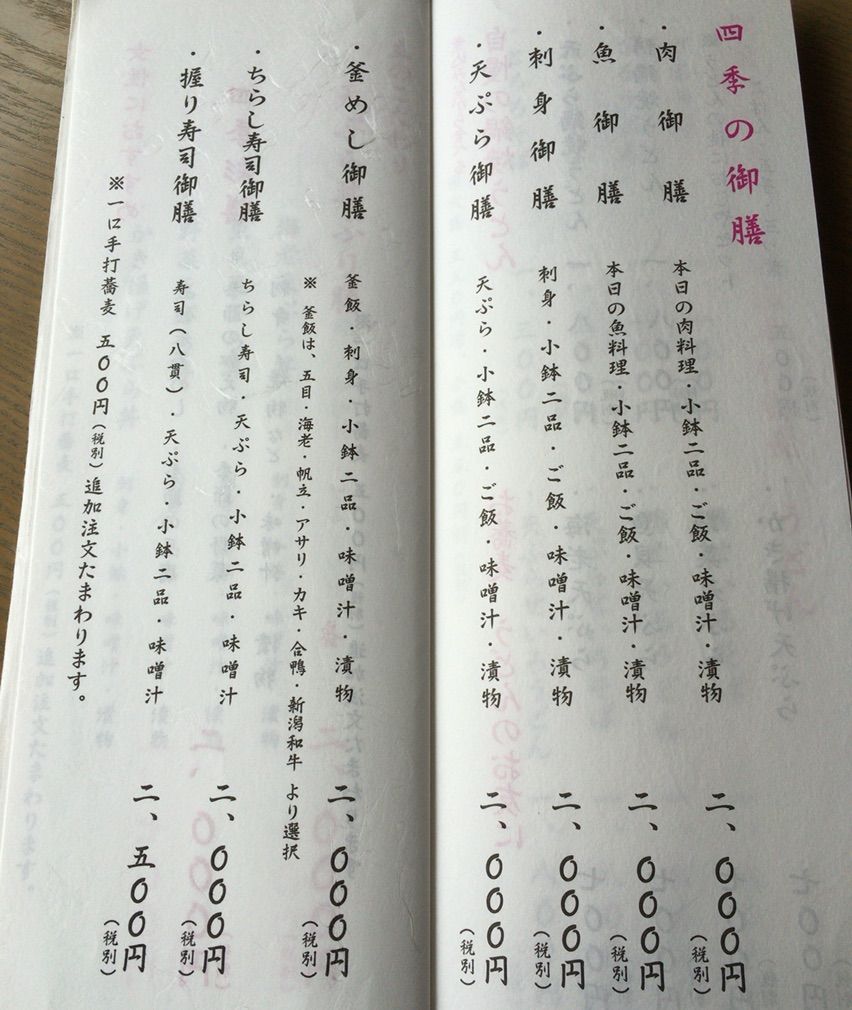 四季の御膳
・肉御膳 本日の肉料理・小鉢二品・ご飯・味噌汁・漬物 二、〇〇〇円（税別）
・魚御膳 本日の魚料理・小鉢二品・ご飯・味噌汁・漬物 二、〇〇〇円（税別）
・刺身御膳 刺身・小鉢二品・ご飯・味噌汁・漬物 二、〇〇〇円（税別）
・天ぷら御膳 天ぷら・小鉢二品・ご飯・味噌汁・漬物 二、〇〇〇円（税別）
・釜めし御膳 釜飯・刺身・小鉢二品・味噌汁・漬物 二、〇〇〇円（税別）
※釜飯は、五目・海老・帆立・アサリ・カキ・合鴨・新潟和牛 より選択
・ちらし寿司御膳 ちらし寿司・天ぷら・小鉢二品・味噌汁 二、〇〇〇円（税別）
・握り寿司御膳 寿司（八貫）・天ぷら・小鉢二品・味噌汁 二、五〇〇円（税別）
※一口手打蕎麦 五〇〇円（税別）追加注文たまわります。